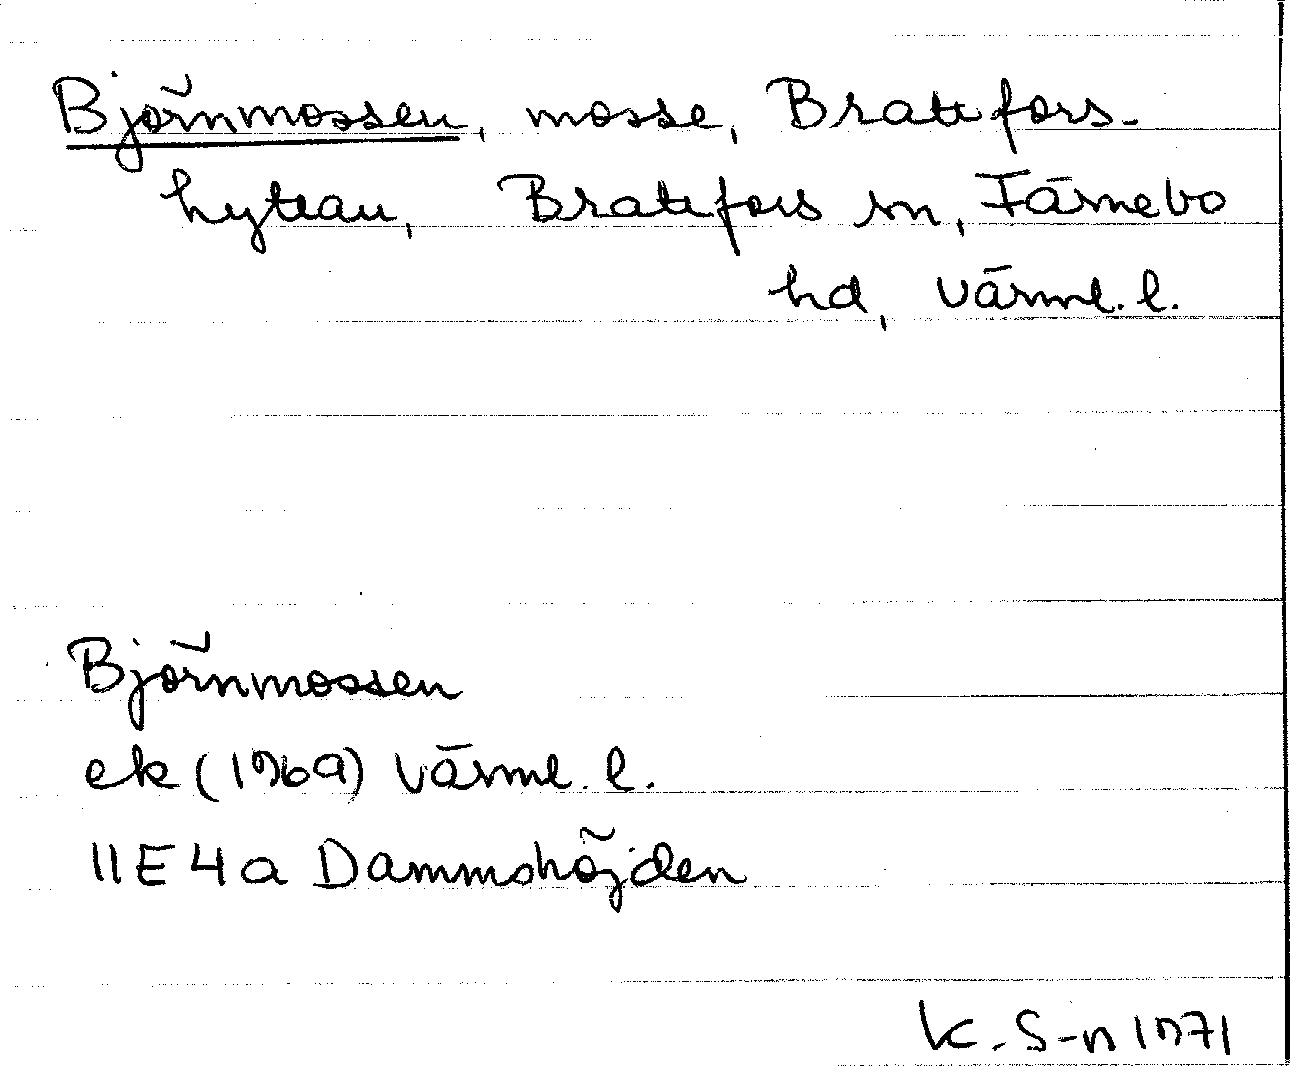 Björnmossen, mosse, Brattfors-
hyttan, Brattfors sn, Färnebo
hd, Värml. l.
Björnmossen
ek (1969) Värml. l.
11E4a Dammshöjden
K. S-n 1971